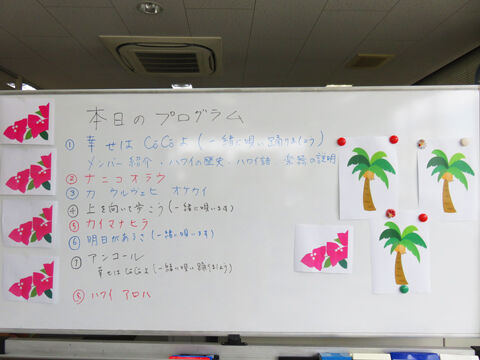 本日のプログラム
① 幸せは CoCo よ (一緒に唄い踊りましょう)
メンバー紹介・ハワイの歴史・ハワイ語 楽器の説明
② ナニコオラウ
③ カ ウルウェヒ オケカイ
④ 上を向いて歩こう (一緒に唄います)
⑤ カイマナヒラ
⑥ 明日があるさ (一緒に唄います)
⑦ アンコール
幸せは CoCo よ (一緒に唄い踊りましょう)
⑧ ハワイ アロハ